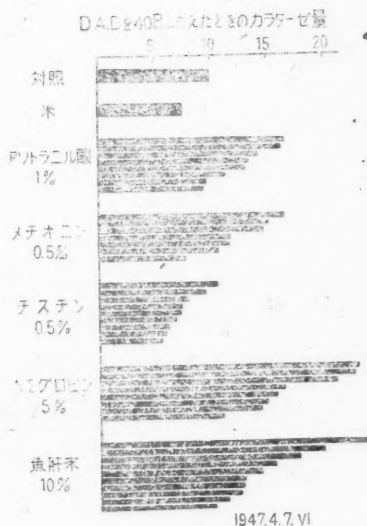 D.A.B を40日 あたえたときのカラターゼ量
5 10 15 20
対照
米
アントラニル酸
1%
メチオニン
0.5%
チスチン
0.5%
ヘモグロビン
5%
魚肝末
10%
1947.4.7. VI